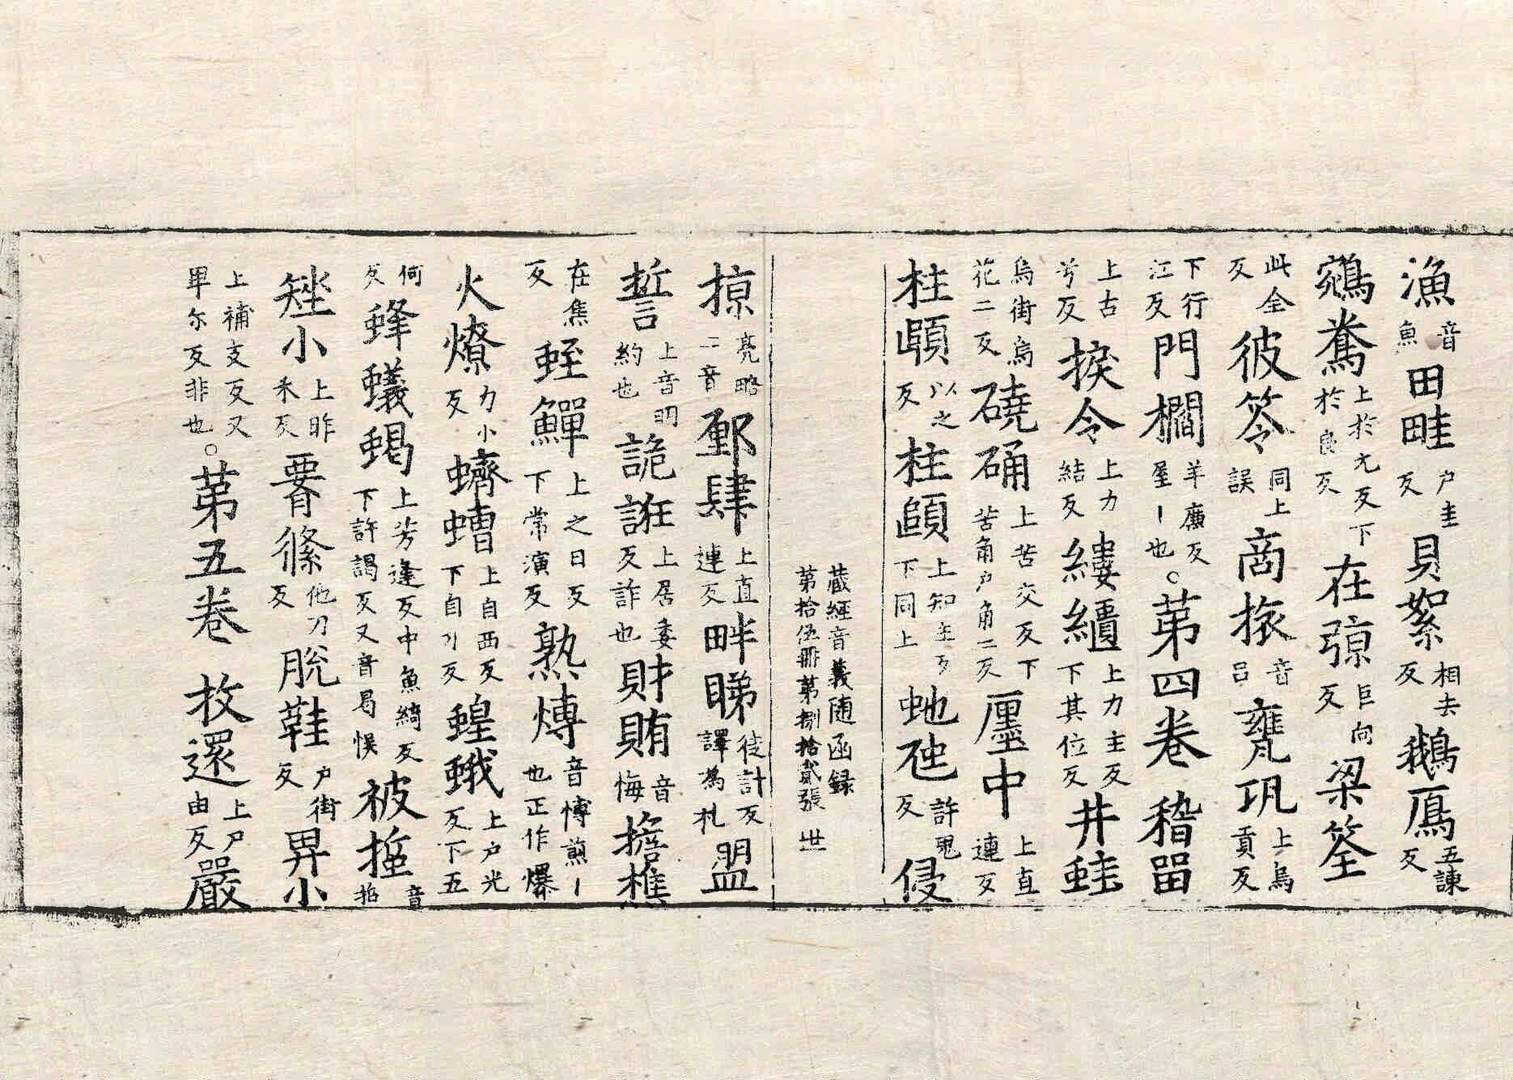 漁音魚田畦户圭反貝絮相去反鵝鳫五諫反
鵶鴦上於尢反下於良反在弶巨向反梁筌
此全反彼笭同上誤商旅音吕甕㺬上烏貢反
下行江反門欄羊廉反屋丨也。第四卷稽留
上古兮反捩令上力結反縷繬上力主反下其位反井蛙
烏街烏花二反磽确上苦交反下苦角户角二反厘中上直連反
柱頤以之反柱頤上知主反下同上虵虺許鬼反侵
藏經音義随函録
第拾伍冊第捌拾貳張 世
掠亮略二音鄽肆上直連反畔睇徒計反譯為札盟
誓上音明約也詭誑上居委反詐也財賄音悔擔樵
在焦反蛭鱓上之日反下常演反熟煿音愽煎丨也正作爆
火燎力小反蠐螬上自西反下自刀反蝗蛾上户光反下五
何反蜂蟻蝎上芳逢反中魚綺反下許謁反又音曷悮被掐音
矬小上昨禾反䐧絛他刀反脫鞋户街反畀小
上補支反又畢尓反非也。第五卷 抆還上户由反嚴